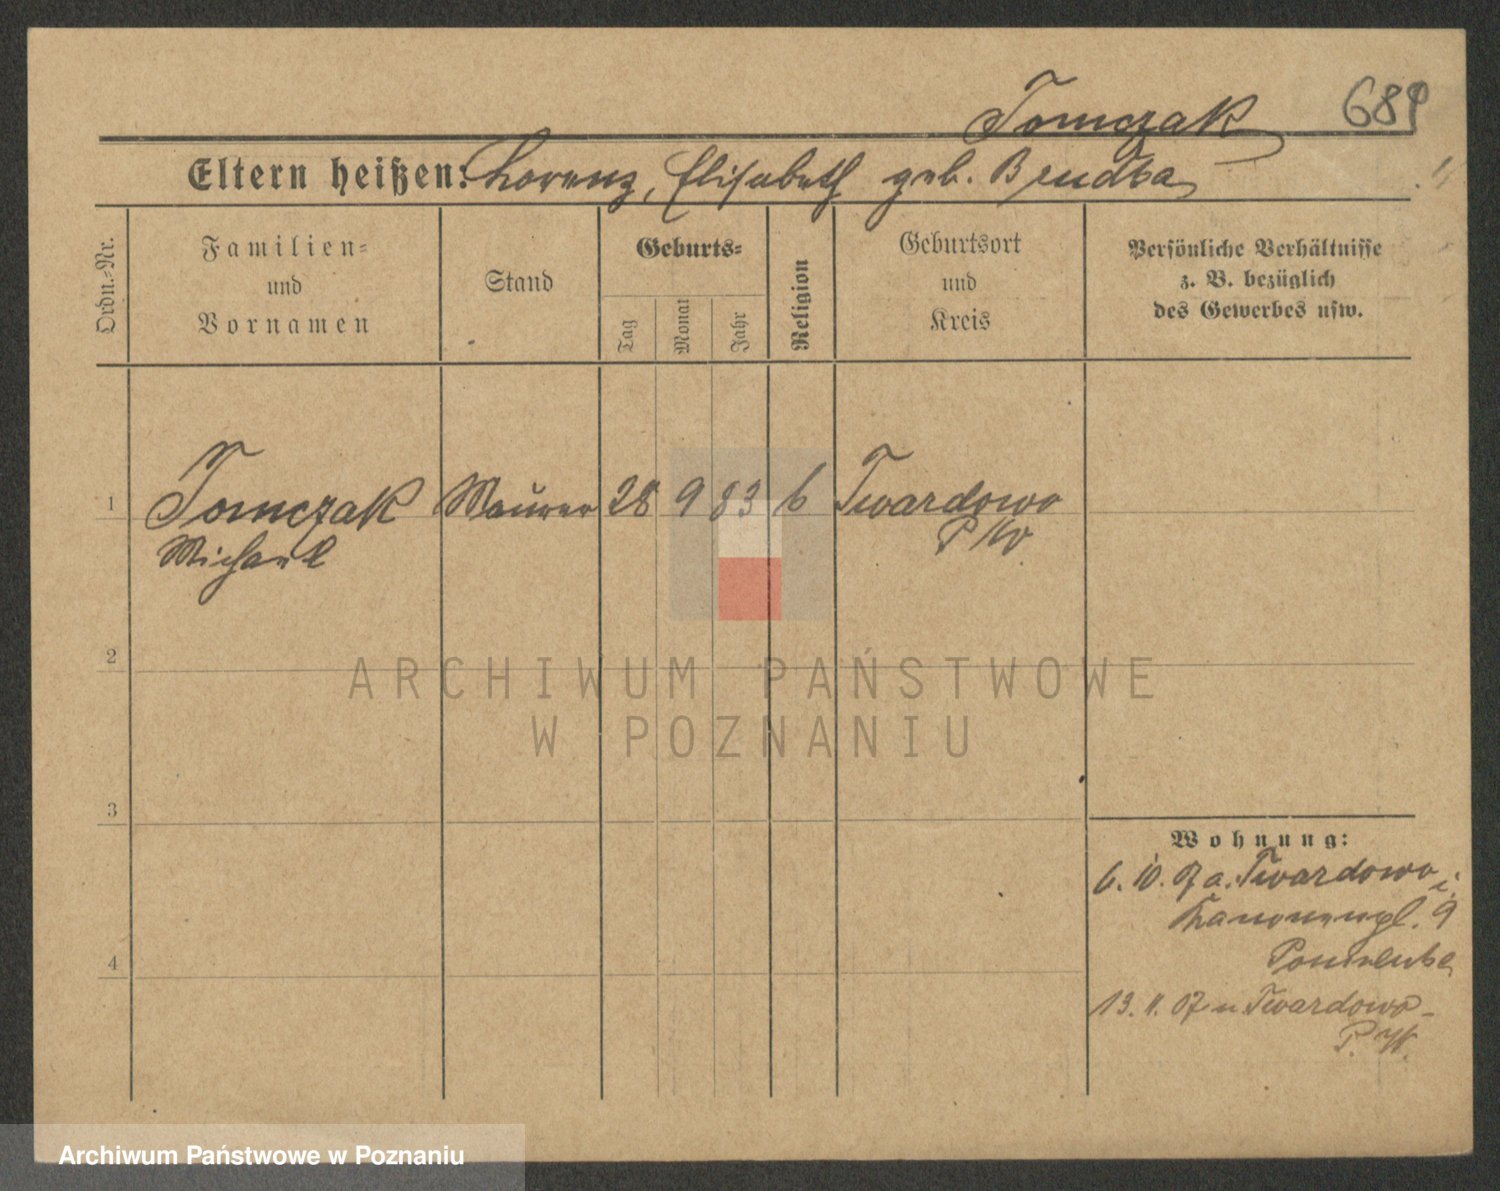 Tomczak 689
Eltern heißen: Lorenz, Elisabeth geb. Brudba
Ordn.-Nr.
Familien-
und
Vornamen
Stand
Geburts-
Tag
Monat
Jahr
Religion
Geburtsort
und
Kreis
Persönliche Verhältnisse
z. B. bezüglich
des Gewerbes usw.
1 Tomczak Maurer 28 9 83 k Twardowo
Michael P/W
2
3
4
Wohnung:
6. 10. 07 a. Twardowo i.
Kanonenpl. 9
13. 11. 07 n Twardowo
P. W.
ARCHIWUM PAŃSTWOWE
W POZNANIU
Archiwum Państwowe w Poznaniu